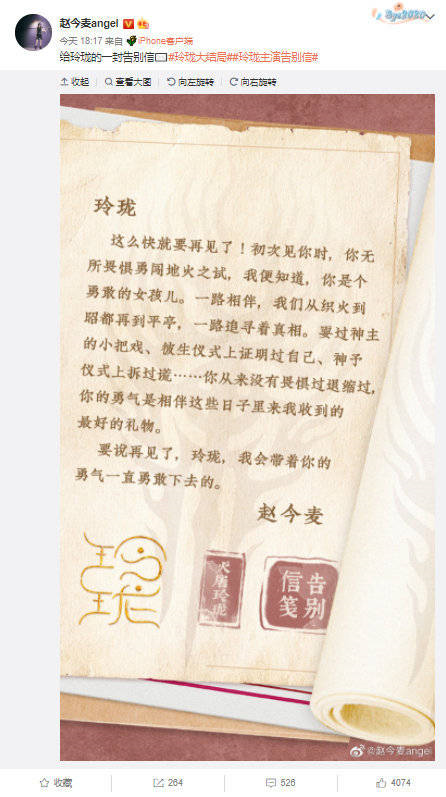 赵今麦angel
Bye2020
今天 18:17 来自 iPhone客户端
给玲珑的一封告别信#玲珑大结局##玲珑主演告别信#
收起 查看大图 向左旋转 向右旋转
玲珑
这么快就要再见了！初次见你时，你无
所畏惧勇闯地火之试，我便知道，你是个
勇敢的女孩儿。一路相伴，我们从织火到
昭都再到平亭，一路追寻着真相。耍过神主
的小把戏、彼生仪式上证明过自己、神予
仪式上拆过谎……你从来没有畏惧过退缩过，
你的勇气是相伴这些日子里来我收到的
最好的礼物。
要说再见了，玲珑，我会带着你的
勇气一直勇敢下去的。
赵今麦
玲珑
火唐玲珑
告别信笺
@赵今麦angel
收藏 264 526 4074